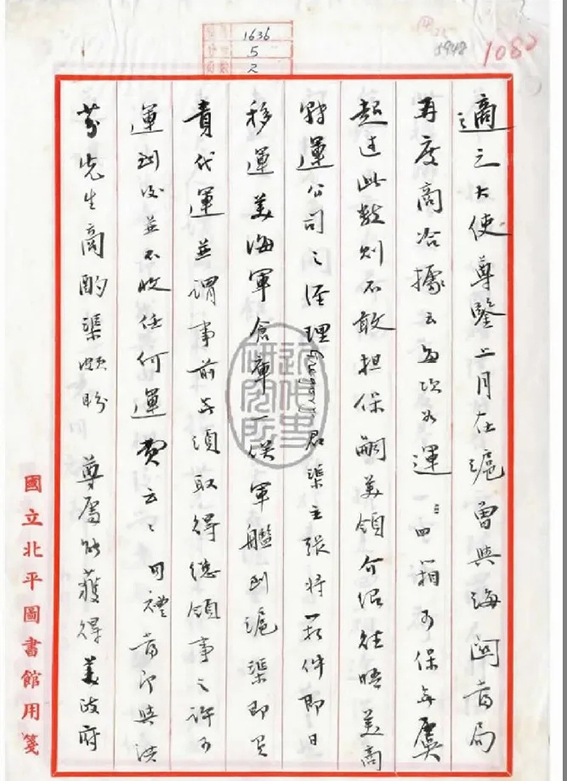 適之大使尊鑒上月在滬曾與海關當局
再度商洽據云每次如運三四箱可保無虞
超过此數則不敢担保嗣美領介紹往晤美商
轉運公司之経理 君渠主張將箱件即日
移運美海軍倉庫一俟軍艦到滬渠即負
責代運並謂事前無須取得総領事之許可
運到後並不收任何運費云云同禮當即與洪
芬先生商酌渠頗盼 尊處能獲得美政府
國立北平圖書館用箋
1636
5
2
5948
1080
近代史研究所